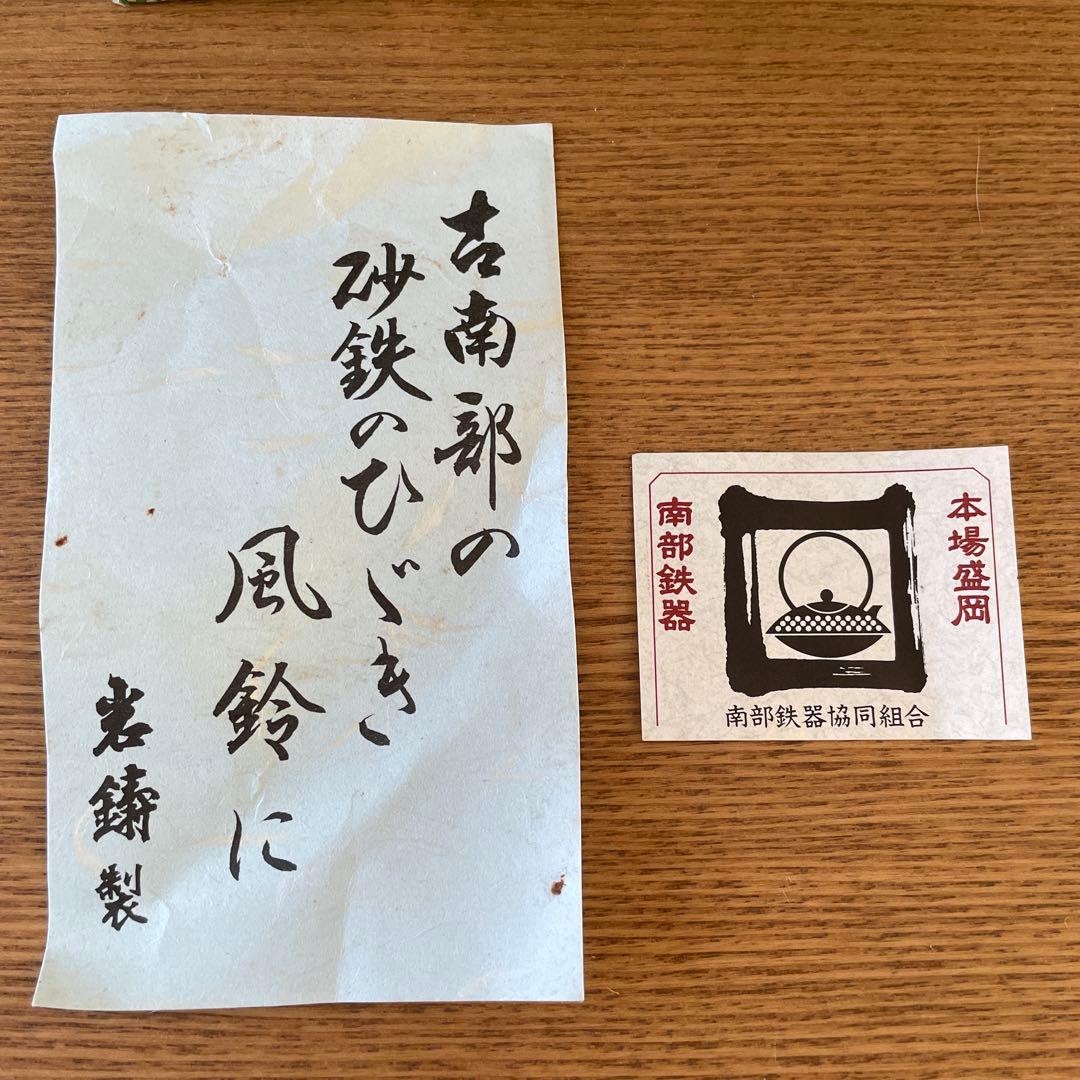 古南部の
砂鉄のひゞき
風鈴に
岩鋳製
本場盛岡
南部鉄器
南部鉄器協同組合